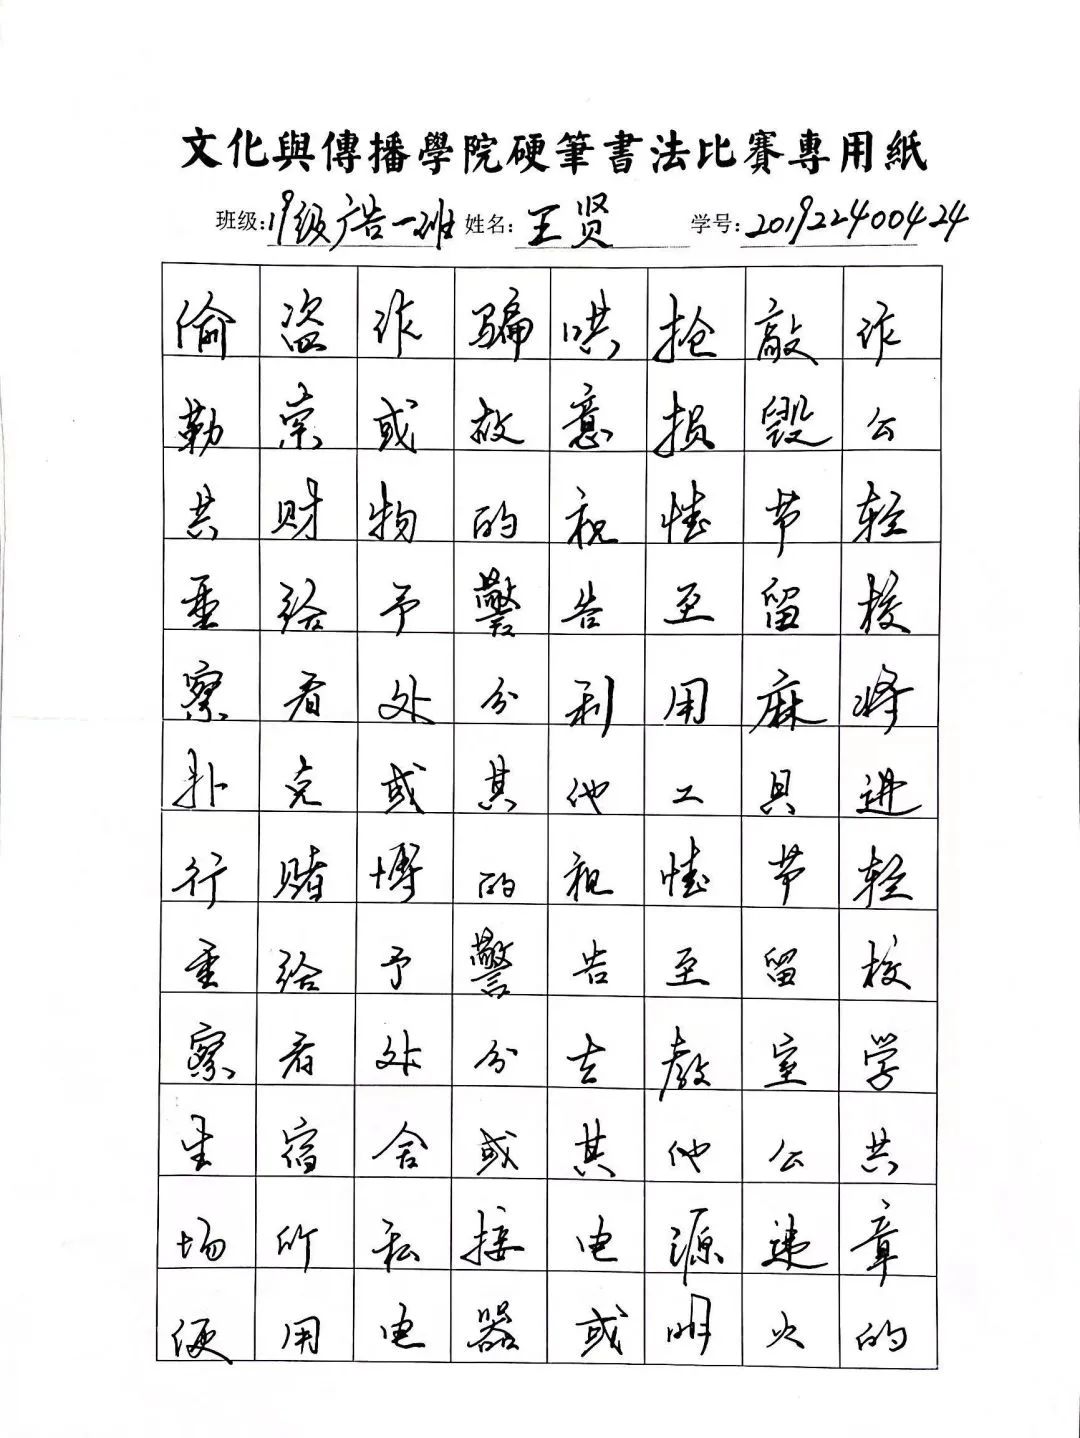 文化與傳播學院硬筆書法比賽專用紙
班级:19级广告一班 姓名:王贤 学号:201922400424
偷盗诈骗哄抢敲诈
勒索或故意损毁公
共财物的视情节轻
重给予警告至留校
察看处分利用麻将
扑克或其他工具进
行赌博的视情节轻
重给予警告至留校
察看处分在教室学
生宿舍或其他公共
场所私接电源违章
使用电器或明火的